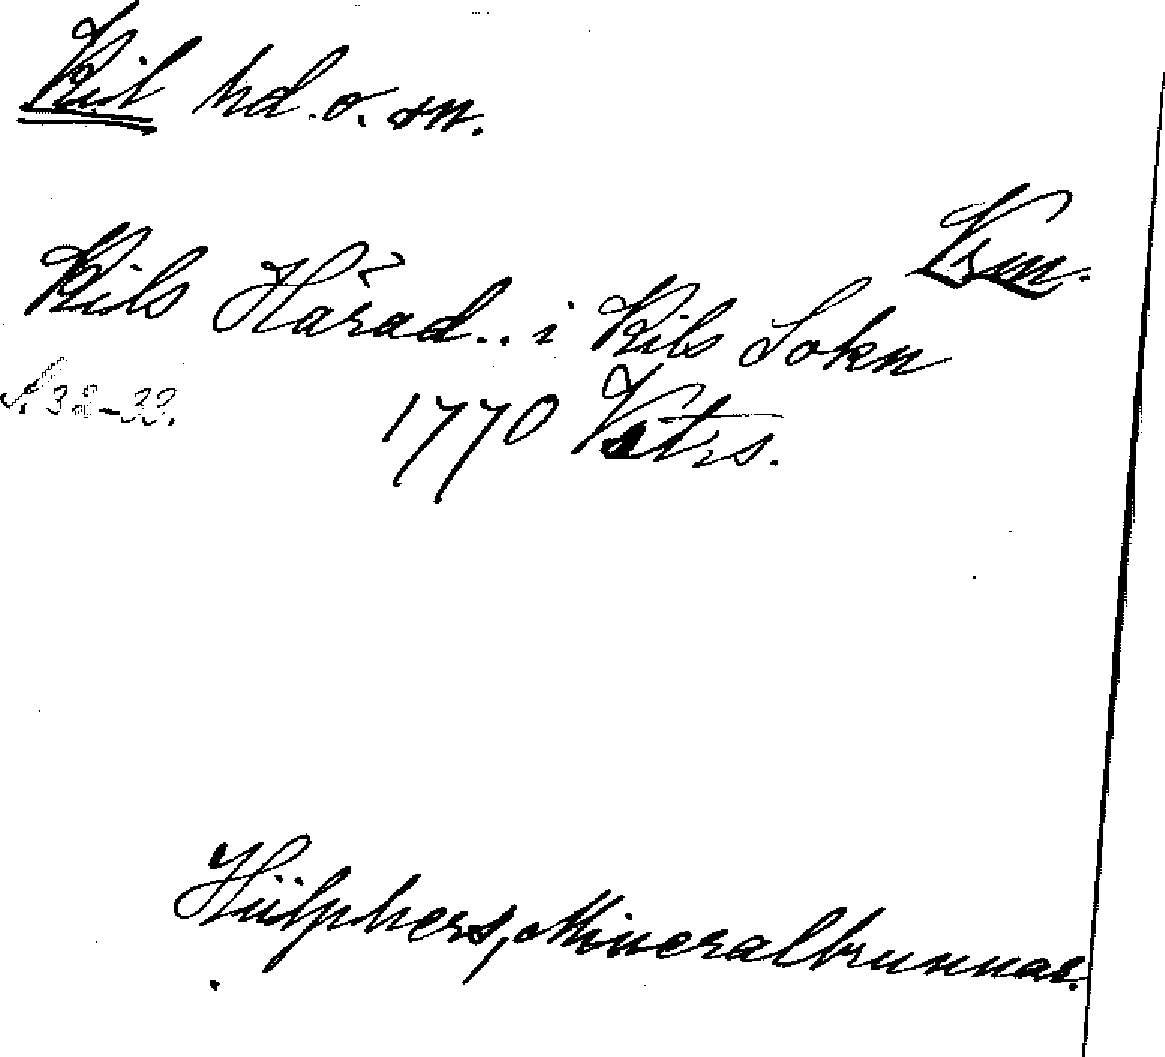 Kil hd. o. sn.
Vrm.
Kils Härad.. i Kils Sokn
S. 32-33.
1770 Vstrs.
Hülphers, Mineralbrunnar.